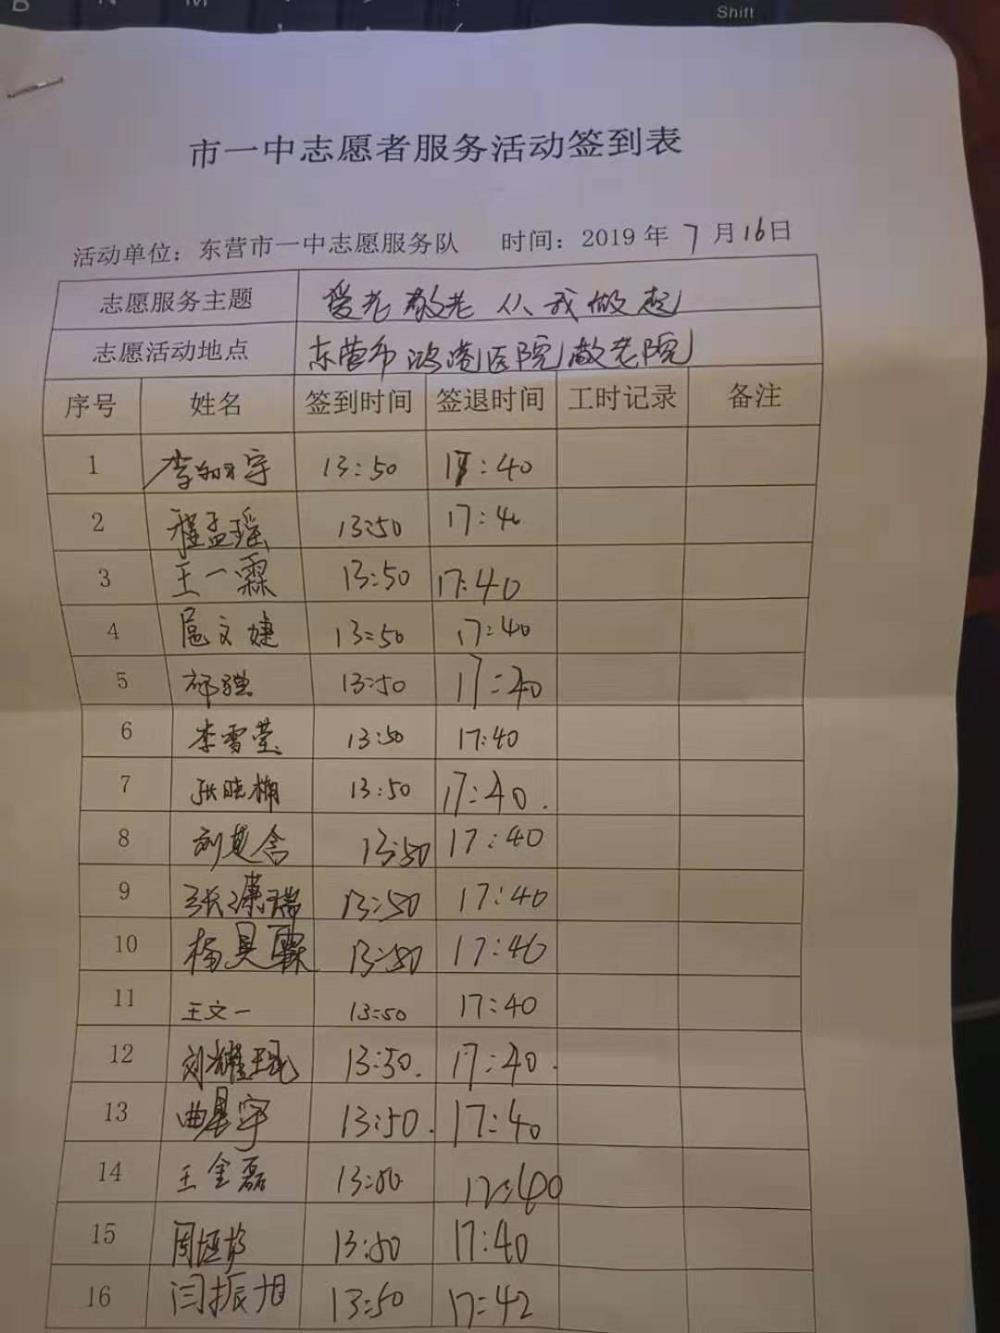 Shift
市一中志愿者服务活动签到表
活动单位：东营市一中志愿服务队 时间：2019年7月16日
志愿服务主题 爱老敬老 从我做起
志愿活动地点 东营市鸿港医院敬老院
序号 姓名 签到时间 签退时间 工时记录 备注
1 13:50 17:40
2 程孟瑶 13:50 17:40
3 王一霖 13:50 17:40
4 扈文婕 13:50 17:40
5 13:50 17:40
6 李雪莹 13:50 17:40
7 张晓楠 13:50 17:40.
8 刘楚含 13:50 17:40
9 张濂瑞 13:50 17:40
10 杨昊霖 13:50 17:40
11 王文一 13:50 17:40
12 刘耀琨 13:50. 17:40.
13 13:50. 17:40
14 王金磊 13:50 17:40
15 13:50 17:40
16 闫振旭 13:50 17:42